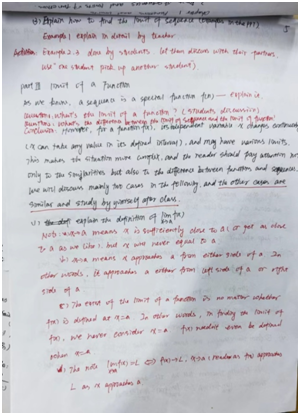 3) Explain how to find the limit of sequence (
Example 1 explain in detail by teacher
Example 2 is done by students let them discuss with their partners.
Use "one student pick up another student".
part II limit of a function
As we know, a sequence is a special function f(n) — explain
Question: What's the limit of a function? (students discussion)
Question: What's the difference between the limit of sequence and the limit of function?
However, for a function f(x), its independent variable x changes continuously
(x can take any value in its defined interval), and may have various limits.
This makes the situation more complex, and the reader should pay attention not
only to the similarities but also to the difference between function and sequences.
We will discuss mainly two cases in the following, and the other cases are
similar and study by yourself after class.
explain the definition of lim f(x)
x→a
Note: x→a means x is sufficiently close to a, or get as close
to a as we like, but x will never equal to a.
x→a means x approaches a from either side of a. In
other words, it approaches a either from left side of a or right
side of a
The trend of the limit of a function is no matter whether
f(x) is defined at x=a. In other words, in finding the limit of
f(x), we never consider x=a. f(x) needn't even be defined
when x=a
d. The note lim f(x)=L ⇔ f(x)→L, x→a; read as f(x) approaches
x→a
L as x approaches a.